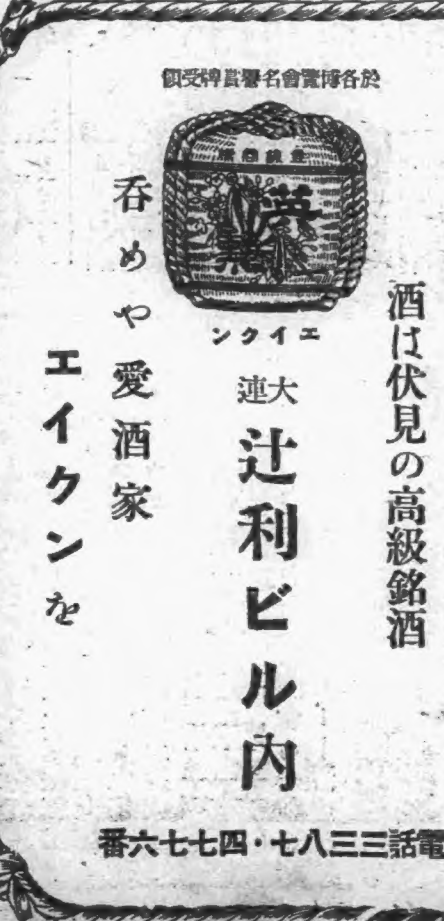 於各博覽會名譽賞牌受領
英勲
エイクン
酒は伏見の高級銘酒
大連
辻利ビル内
呑めや愛酒家
エイクンを
電話三三八七・四七七六番